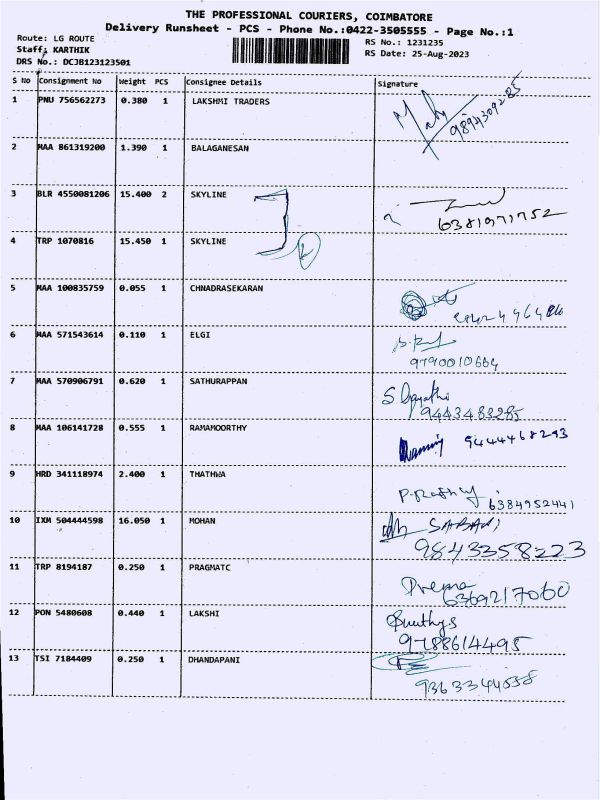 THE PROFESSIONAL COURIERS, COIMBATORE
Delivery Runsheet - PCS - Phone No.:0422-3505555 - Page No.:1
Route: LG ROUTE
Staff: KARTHIK
DRS No.: DCJB123123501
RS No.: 1231235
RS Date: 25-Aug-2023
S No Consignment No Weight PCS Consignee Details Signature
1 PNU 756562273 0.380 1 LAKSHMI TRADERS
2 MAA 861319200 1.390 1 BALAGANESAN
3 BLR 4550081206 15.400 2 SKYLINE 6381971752
4 TRP 1070816 15.450 1 SKYLINE
5 MAA 100835759 0.055 1 CHNADRASEKARAN
6 MAA 571543614 0.110 1 ELGI 9790010664
7 MAA 570906791 0.620 1 SATHURAPPAN 9443483285
8 MAA 106141728 0.555 1 RAMAMOORTHY 9444468293
9 HRD 341118974 2.400 1 THATHWA 6384952441
10 IXM 504444598 16.050 1 MOHAN SABARI 9843358223
11 TRP 8194187 0.250 1 PRAGMATC Prema 6369217060
12 PON 5480608 0.440 1 LAKSHI 9788614495
13 TSI 7184409 0.250 1 DHANDAPANI 9363344558